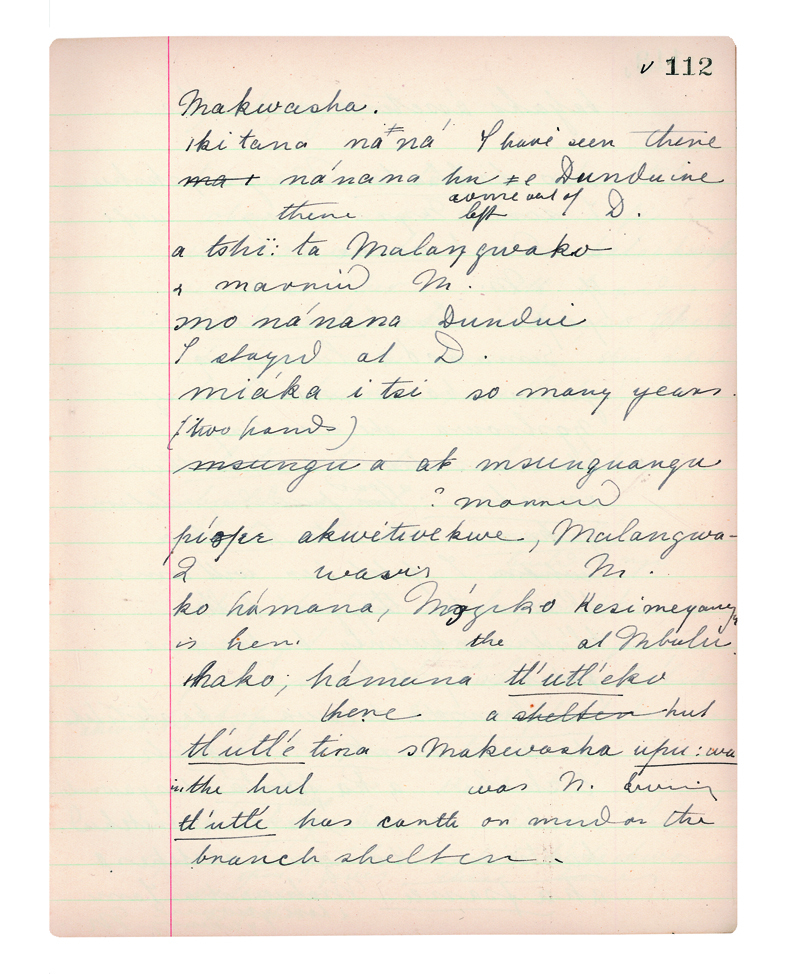 v 112
Makwasha.
ikitana ná‡ná I have seen there
ma nánana hu ‡e Dunduine
came out of
there left D.
a tshi: ta Malangwako
& married M.
mo nánana Dundui
I stayed at D.
miáka i tsi so many years.
(two hands)
msungu a ak msunguangu
? married
akwétwekwe, Malangwa-
2 wasis M.
ko hámana, Kesimeyang
is here the at Mbulu.
hako; hámana tl'utl'eko
there a shelter hut
tl'utl'e tina sMakwasha upu:wa
in the hut was N. living
tl'utl'e has earth or mud on the
branch shelter.